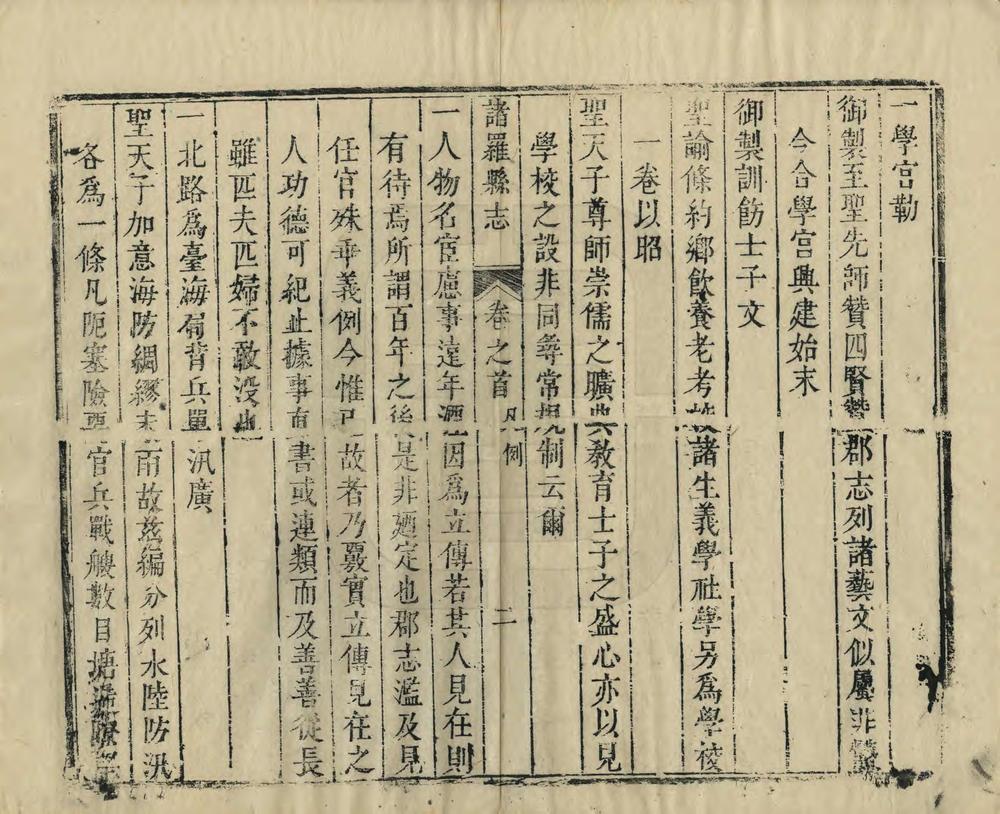 一學宮勒
御製至聖先師贊四賢贊郡志列諸藝文似屬非
今合學宮興建始末
御製訓飭士子文
聖諭條約鄉飲養老考校諸生義學社學另為學校
一卷以昭
聖天子尊師崇儒之曠典教育士子之盛心亦以見
學校之設非同尋常規制云爾
諸羅縣志 卷之首 凡例 二
一人物名宦慮事遠年湮因為立傳若其人見在則
有待焉所謂百年之後是非迺定也郡志濫及見
任官殊乖義例今惟已故者乃覈實立傳見在之
人功德可紀止據事直書或連類而及善善從長
雖匹夫匹婦不敢没也
一北路為臺海肩背兵單汛廣
聖天子加意海防綢繆未雨故茲編分列水陸防汛
各為一條凡阨塞險要官兵戰艘數目塘